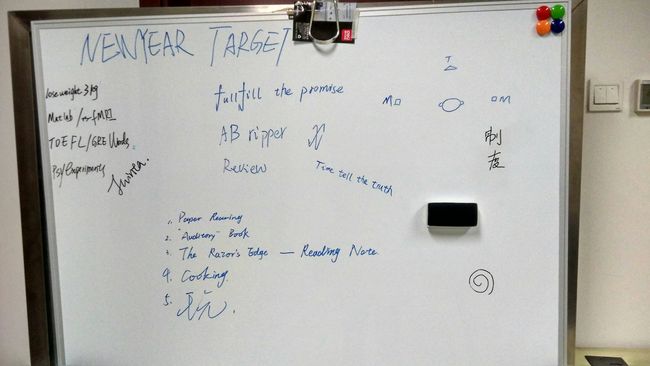 NEWYEAR TARGET
lose weight 3kg
Matlab / fMRI
TOEFL/GRE Words
Psy Experiments
fullfill the promise
AB ripper
Review
Time tell the truth
T
M
M
制
度
1. Paper
2. "Auditory" Book
3. The Razor's Edge — Reading Note
4. Cooking
5.